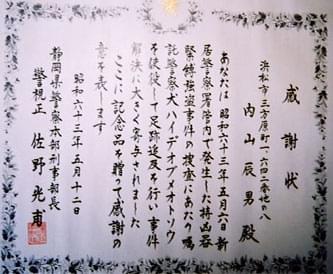 感謝状
浜松市三方原町一六四二番地の八
内山辰男殿
あなたは昭和六十三年五月六日新
居警察署管内で発生した持凶器
緊縛強盗事件の捜査にあなたの嘱
託警察犬ハイデオブメオトゥウ
を使役して足跡追及を行い事件
解決に大きく寄与されました
ここに記念品を贈って感謝の
意を表します
昭和六十三年五月十二日
静岡県警察本部刑事部長
警視正 佐野光重